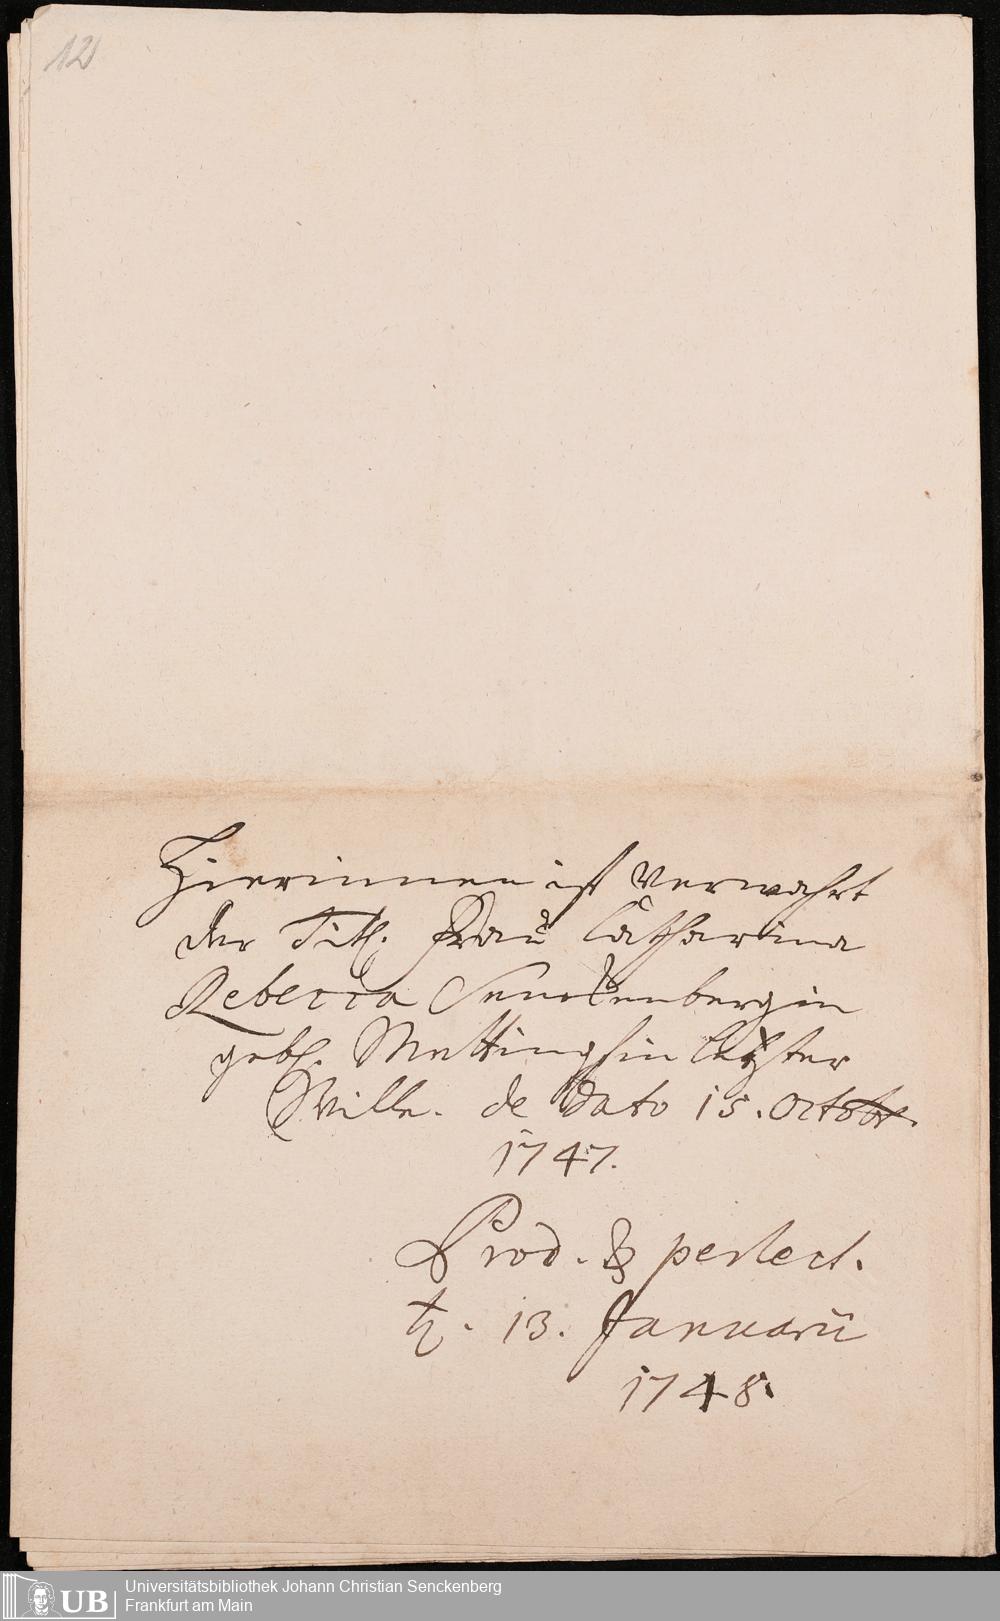 12
Hierinnen ist verwahrt
der Titl. Frau Catharina
Rebecca Senckenbergin
gebl. Mettinghin letzter
Wille. de dato 15. Octobr.
1747.
Prod. & perlect.
♄. 13. Januarii
1748.
UB
Universitätsbibliothek Johann Christian Senckenberg
Frankfurt am Main